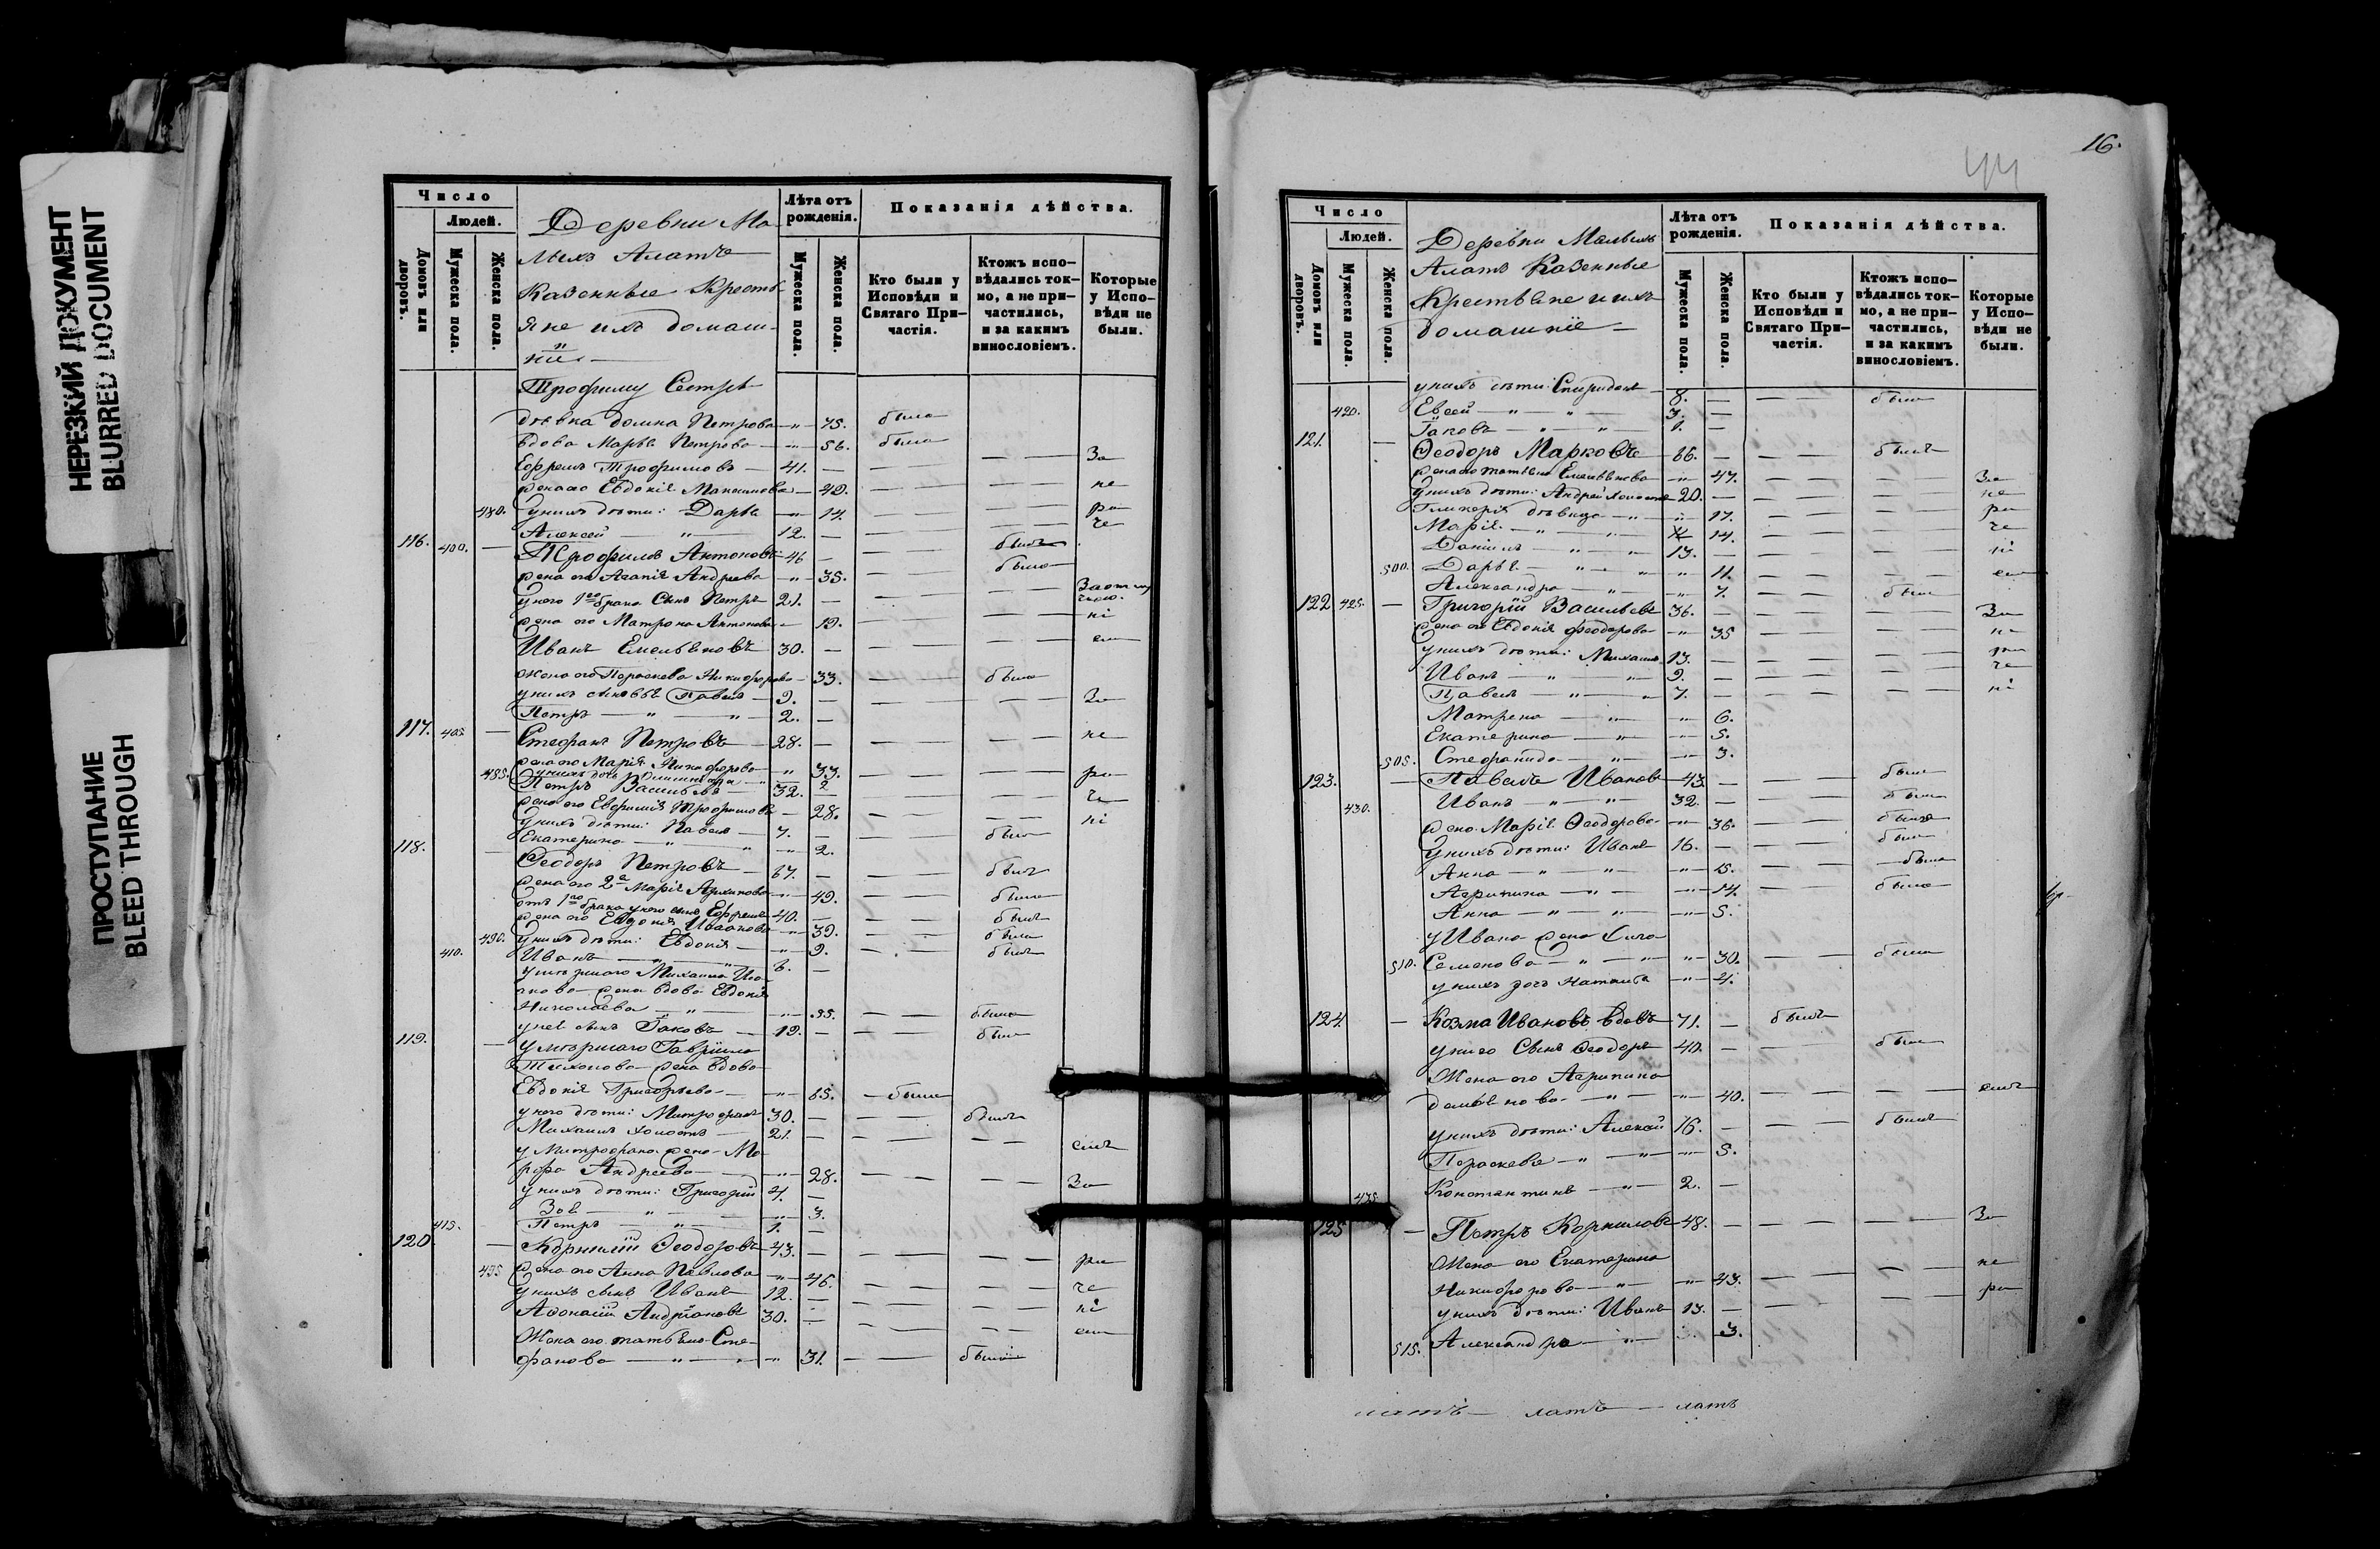 НЕРЕЗКИЙ ДОКУМЕНТ
BLURRED DOCUMENT
ПРОСТУПАНИЕ
BLEED THROUGH
Число
Людей.
Домовъ или дворовъ.
Мужеска пола.
Женска пола.
Деревни Ма-
лыхъ Алатъ
Казенные Кресть
яне ихъ домаш-
ніе
Лѣта отъ рожденія.
Мужеска пола.
Женска пола.
Показанія дѣйства.
Кто были у Исповѣди и Святаго При-частія.
Ктожъ испо-вѣдались ток-мо, а не при-частились, и за какимъ винословіемъ.
Которые у Испо-вѣди не были.
Трофиму Сестра
дѣвка Домна Петрова — " — 75. была
вдова Марья Петрова — " — 56. была
Ефремъ Трофимовъ — 41. — За
жена его Евдокія Максимова — 40. не
480. у нихъ дѣти: Дарья — " — 14. ра
Алексей — " — 12. — че
116. 400. — Трофимъ Антоновъ 46 — былъ
жена его Агапія Андреева — " — 35. была
у него 1го брака Сынъ Петръ 21. —
жена его Матрона Антонова — 19. ні
Иванъ Емельяновъ 30. — ем
жена его Параскева Никифорова — 33. была
у нихъ сыновья Павелъ — 9. — За
Петръ — " — " — 2. —
117. 405. — Стефанъ Петровъ — 28. — не
жена его Марія Никифорова — " 33. ра
485. у нихъ дочь 2
Петръ Васильевъ — 32. —
жена его Евфимія Трофимова — 28. че
у нихъ дѣти: Павелъ — 7. — ні
Екатерина — " — " — 2. была
118. — Ѳеодоръ Петровъ — 67. — былъ
жена его 2я Марія Архипова — " — 49. была
отъ 1го брака у него сынъ Ефремъ 40. — былъ
жена его Евдокія Иванова — " — 39. была
490. у нихъ дѣти: Евдокія — " — 9. былъ
410. Иванъ — " — " — 6. —
умершаго Михаила
жена вдова Евдокія
Николаева — " — " — 55. была
у нея сынъ Іаковъ — 19. — былъ
119. — Умершаго Гавріила
Тихонова жена вдова
Евдокія Григорьева — " — 65. — была
у него дѣти: Митрофанъ 30. — былъ
Михаилъ холостъ — 21. — емъ
у Митрофана жена Ма
рфа Андреева — " — 28. За
у нихъ дѣти: Григорій 4. —
Зоя — " — " — 3.
415. Петръ — " — 1. —
120. — Корнилій Ѳеодоровъ 43. — ра
495 жена его Анна Павлова — " — 46. че
у нихъ сынъ Иванъ 12. — ні
Аѳонасій Андріановъ 30. — ем
Жена его Татьяна Сте-
фанова — " — " — " — 31. была
16.
44
Число
Людей.
Домовъ или дворовъ.
Мужеска пола.
Женска пола.
Деревни Малыхъ
Алатъ Казенные
Крестьяне и ихъ
домашніе
Лѣта отъ рожденія.
Мужеска пола.
Женска пола.
Показанія дѣйства.
Кто были у Исповѣди и Святаго При-частія.
Ктожъ испо-вѣдались ток-мо, а не при-частились, и за какимъ винословіемъ.
Которые у Испо-вѣди не были.
у нихъ дѣти: Спиридонъ 8. — былъ
420. Евсей — " — " — 3. —
Іаковъ — " — " — 1. —
121. — Ѳеодоръ Марковъ 66. — былъ
жена его Татьяна Емельянова — " — 47. За
у нихъ дѣти: Андрей холостъ 20. — не
Гликерія дѣвица — " — " — 17. ра
Марія — " — " — 14. че
Даніилъ — " — " — 13. — ні
500. Дарья — " — " — " — 11. ем
Александра — " — " — 7. была
122. 425. — Григорій Васильевъ 36. — За
жена его Евдокія Ѳеодорова — " — 35 не
у нихъ дѣти: Михаилъ 13. — ра
Иванъ — " — " — 9. — че
Павелъ — " — " — 7. — ні
Матрена — " — " — 6.
Екатерина — " — " — 5.
505. Стефанида — " — " — 3.
123. — Павелъ Ивановъ 43. — былъ
430. Иванъ — " — " — 32. — былъ
жена Марія Ѳеодорова — " — 36. была
у нихъ дѣти: Иванъ 16. — былъ
Анна — " — " — " — 15. была
Агрипина — " — " — 14. была
Анна — " — " — " — 5.
у Ивана жена
510. Семенова — " — " — 30. была
у нихъ дочь Наталья — " — 4.
124. — Козма Ивановъ вдовъ 71. — былъ
у него Сынъ Ѳеодоръ 40. — былъ
Жена его Агрипина
Демьянова — " — " — 40. емъ
у нихъ дѣти: Алексей 16. — былъ
Параскева — " — " — 5.
435. Константинъ — " — 2. —
125 — Петръ Корниловъ 48. — За
Жена его Екатерина
Никифорова — " — " — 43. не
у нихъ дѣти: Иванъ 13. — ра
515. Александра — " — 3.
латъ — латъ